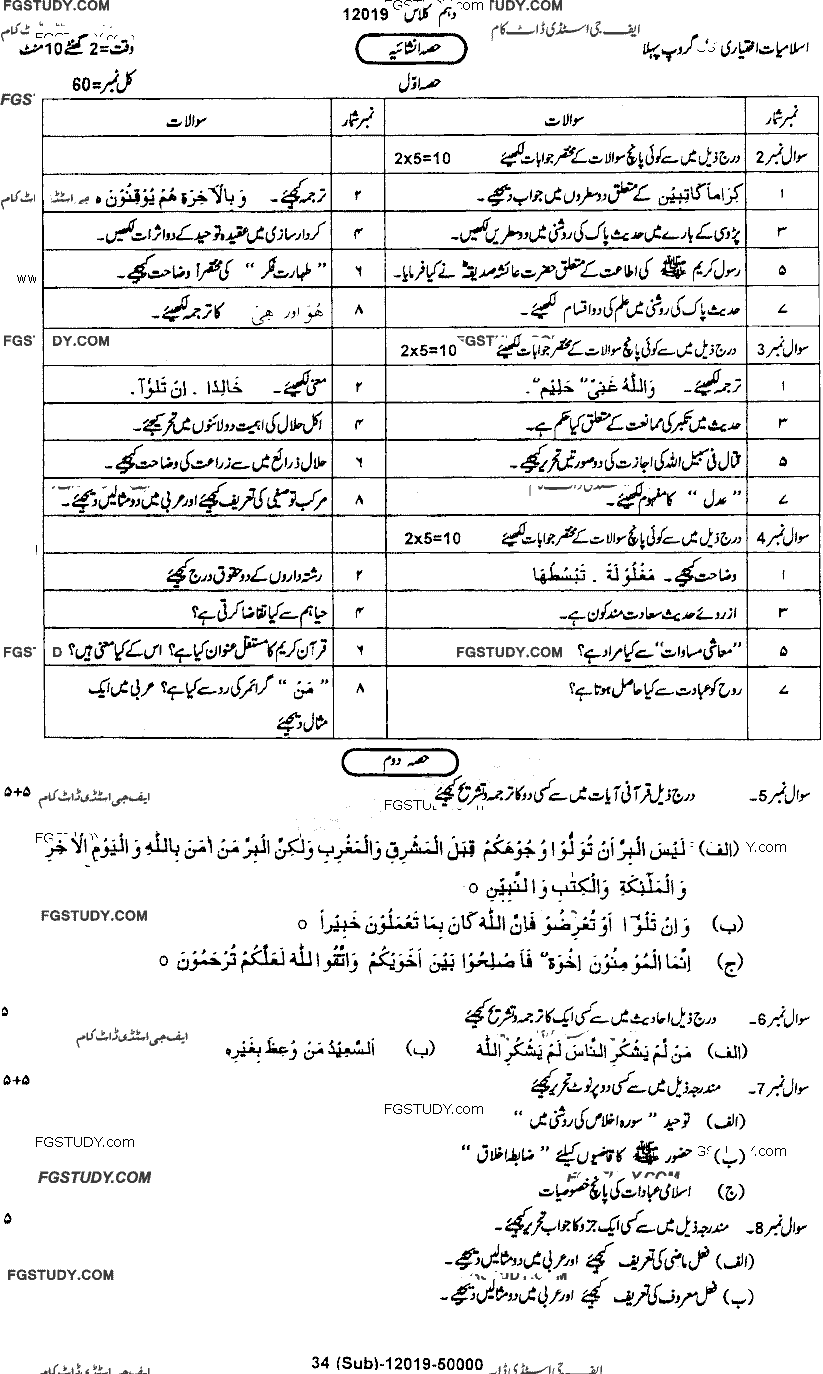 FGSTUDY.COM
دہم کلاس 12019
FGSTUDY.com
TUDY.COM
ایف جی اسٹڈی ڈاٹ کام
اسلامیات اختیاری گروپ پہلا
حصہ انشائیہ
وقت=2 گھنٹے 10 منٹ
حصہ اوّل
کل نمبر=60
نمبر شمار سوالات نمبر شمار سوالات
سوال نمبر 2 درج ذیل میں سے کوئی پانچ سوالات کے مختصر جوابات لکھیئے 2x5=10
۱ کِرَاماً کَاتِبِیْنَ کے متعلق دو سطروں میں جواب دیجیئے۔ ۲ ترجمہ کیجیئے۔ وَ بِالْاٰخِرَۃِ ھُمْ یُوْقِنُوْنَ ہ
۳ پڑوسی کے بارے میں حدیث پاک کی روشنی میں دو سطریں لکھیں۔ ۴ کردار سازی میں عقیدہ توحید کے دو اثرات لکھیں۔
۵ رسول کریم ﷺ کی اطاعت کے متعلق حضرت عائشہ صدیقہؓ نے کیا فرمایا۔ ۶ "طہارت فکر" کی مختصراً وضاحت کیجیئے۔
۷ حدیث پاک کی روشنی میں علم کی دو اقسام لکھیئے۔ ۸ ھُوَ اور ھِیَ کا ترجمہ لکھیئے۔
سوال نمبر 3 درج ذیل میں سے کوئی پانچ سوالات کے مختصر جوابات لکھیئے 2x5=10
۱ ترجمہ لکھیئے۔ وَاللّٰہُ غَنِیٌّ حَلِیْمٌ۔ ۲ معنی لکھیئے۔ خَالِدًا ۔ اِنْ تَلْوٗآ۔
۳ حدیث میں تکبر کی ممانعت کے متعلق کیا حکم ہے۔ ۴ اکل حلال کی اہمیت دو لائنوں میں تحریر کیجیئے۔
۵ قتال فی سبیل اللہ کی اجازت کی دو صورتیں تحریر کیجیئے۔ ۶ حلال ذرائع میں سے زراعت کی وضاحت کیجیئے۔
۷ "عدل" کا مفہوم لکھیئے۔ ۸ مرکب توصیفی کی تعریف کیجیئے اور عربی میں دو مثالیں دیجیئے۔
سوال نمبر 4 درج ذیل میں سے کوئی پانچ سوالات کے مختصر جوابات لکھیئے 2x5=10
۱ وضاحت کیجیئے۔ مَغْلُوْلَۃً ۔ تَبْسُطْھَا ۲ رشتہ داروں کے دو حقوق درج کیجیئے
۳ از روئے حدیث سعادت مند کون ہے۔ ۴ حیا ہم سے کیا تقاضا کرتی ہے؟
۵ "معاشی مساوات" سے کیا مراد ہے؟ FGSTUDY.COM ۶ قرآن کریم کا مستقل عنوان کیا ہے؟ اس کے کیا معنی ہیں؟
۷ روح کو عبادت سے کیا حاصل ہوتا ہے؟ ۸ "مَنْ" گرائمر کی رو سے کیا ہے؟ عربی میں ایک
مثال دیجیئے
حصہ دوم
سوال نمبر 5۔ درج ذیل قرآنی آیات میں سے کسی دو کا ترجمہ و تشریح کیجیئے ۵+۵
ایف جی اسٹڈی ڈاٹ کام
(الف) لَیْسَ الْبِرَّ اَنْ تُوَلُّوْا وُجُوْھَکُمْ قِبَلَ الْمَشْرِقِ وَالْمَغْرِبِ وَلٰکِنَّ الْبِرَّ مَنْ اٰمَنَ بِاللّٰہِ وَ الْیَوْمِ الْاٰخِرِ
وَ الْمَلٰٓئِکَۃِ وَالْکِتٰبِ وَ النَّبِیّٖنَ ○
FGSTUDY.COM
(ب) وَ اِنْ تَلْوٗٓا اَوْ تُعْرِضُوْ فَاِنَّ اللّٰہَ کَانَ بِمَا تَعْمَلُوْنَ خَبِیْراً ○
(ج) اِنَّمَا الْمُؤْمِنُوْنَ اِخْوَۃٌ فَاَصْلِحُوْا بَیْنَ اَخَوَیْکُمْ وَاتَّقُو اللّٰہَ لَعَلَّکُمْ تُرْحَمُوْنَ ○
سوال نمبر 6۔ درج ذیل احادیث میں سے کسی ایک کا ترجمہ و تشریح کیجیئے ۵
ایف جی اسٹڈی ڈاٹ کام
(الف) مَنْ لَّمْ یَشْکُرِ النَّاسَ لَمْ یَشْکُرِ اللّٰہَ (ب) اَلسَّعِیْدُ مَنْ وُعِظَ بِغَیْرِہٖ
سوال نمبر 7۔ مندرجہ ذیل میں سے کسی دو پر نوٹ تحریر کیجیئے ۵+۵
FGSTUDY.com
(الف) توحید "سورہ اخلاص کی روشنی میں"
FGSTUDY.com
(ب) حضور ﷺ کا قاضیوں کیلئے "ضابطہ اخلاق"
FGSTUDY.COM
(ج) اسلامی عبادات کی پانچ خصوصیات
سوال نمبر 8۔ مندرجہ ذیل میں سے کسی ایک جزو کا جواب تحریر کیجیئے۔ ۵
(الف) فعل ماضی کی تعریف کیجیئے اور عربی میں دو مثالیں دیجیئے۔
FGSTUDY.COM
(ب) فعل معروف کی تعریف کیجیئے اور عربی میں دو مثالیں دیجیئے۔
34 (Sub)-12019-50000